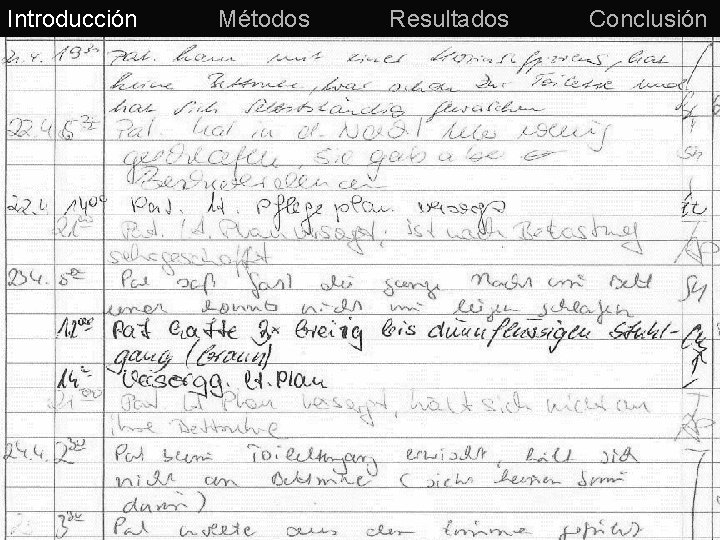 Introducción Métodos Resultados Conclusión
21.4. 19 Pat. kann mit einer hat
keine Bettruhe, war schon zur Toilette und
hat sich selbstständig gewaschen
22.4 5 Pat. hat in d. Nacht sehr wenig
geschlafen, sie gab aber
an
22.4 14 Pat. lt. Pflegeplan versorgt
21 Pat. lt. Plan versorgt, ist nach Belastung
sehr geschafft
23.4. 5 Pat saß fast die ganze Nacht im Bett
und konnte nicht im liegen schlafen
11 Pat hatte 3x breiig bis dünnflüssigen Stuhl-
gang (braun)
14 Versorgg. lt. Plan
21 Pat lt Plan versorgt, hält sich nicht an
ihre Bettruhe
24.4. 2 Pat beim Toilettengang erwischt, hält sich
nicht an Bettruhe (sieht keinen Sinn
darin)
3 Pat wollte aus dem Zimmer geführt